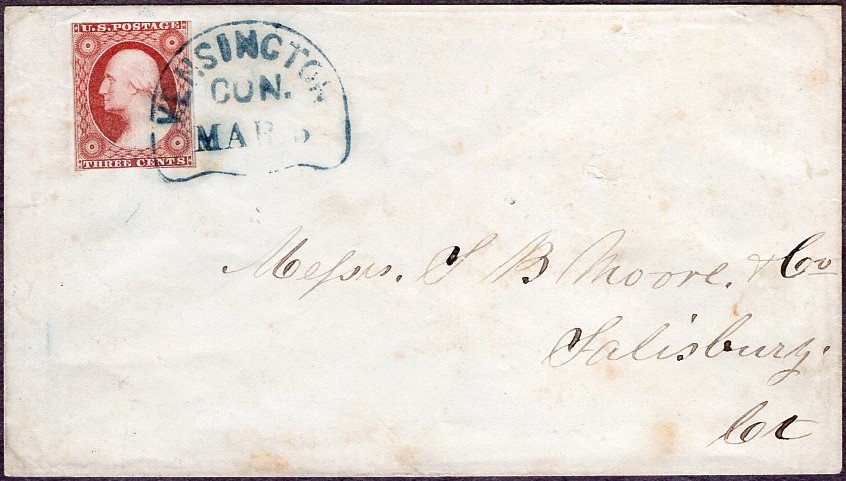 U.S. POSTAGE
THREE CENTS
KENSINGTON
CON.
MAR 5
Messrs. S B Moore. & Co
Salisbury.
Ct